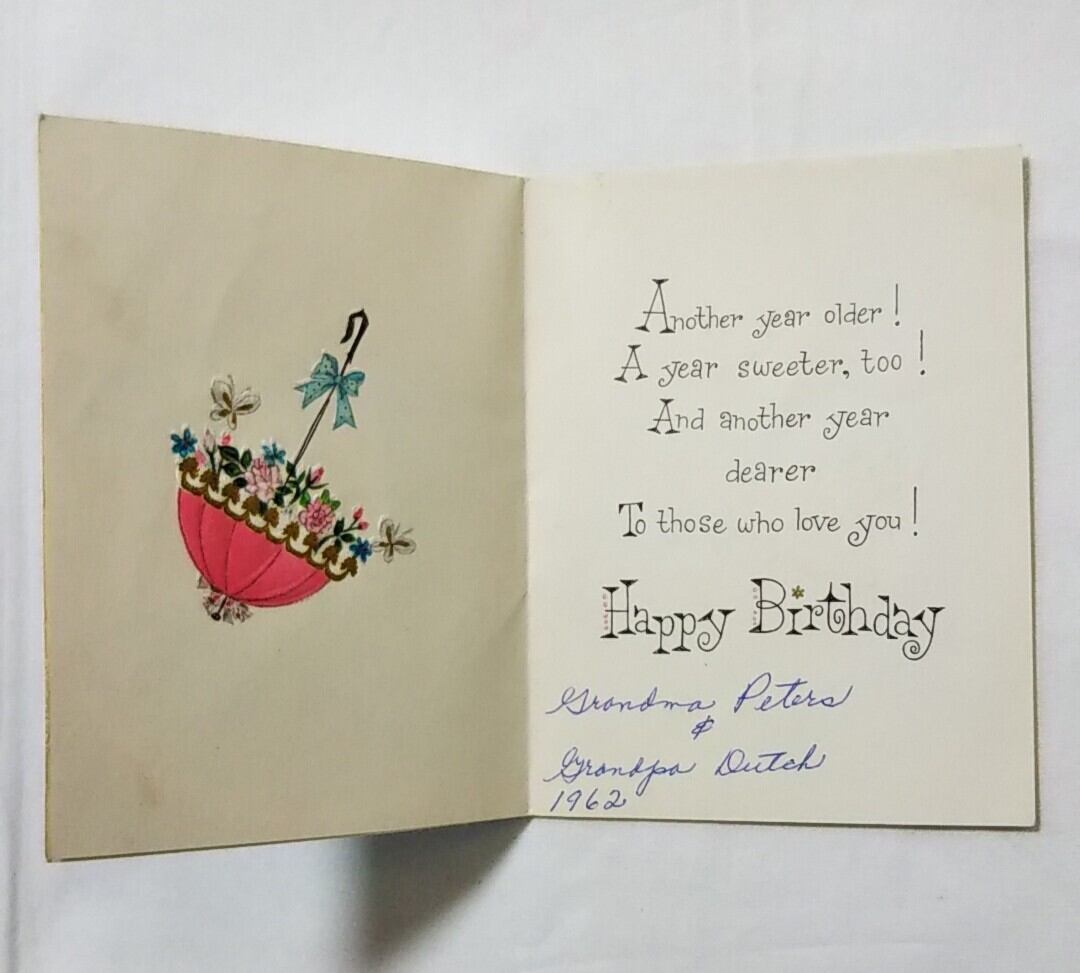 Another year older!
A year sweeter, too!
And another year
dearer
To those who love you!
Happy Birthday
Grandma Peters
&
Grandpa Dutch
1962